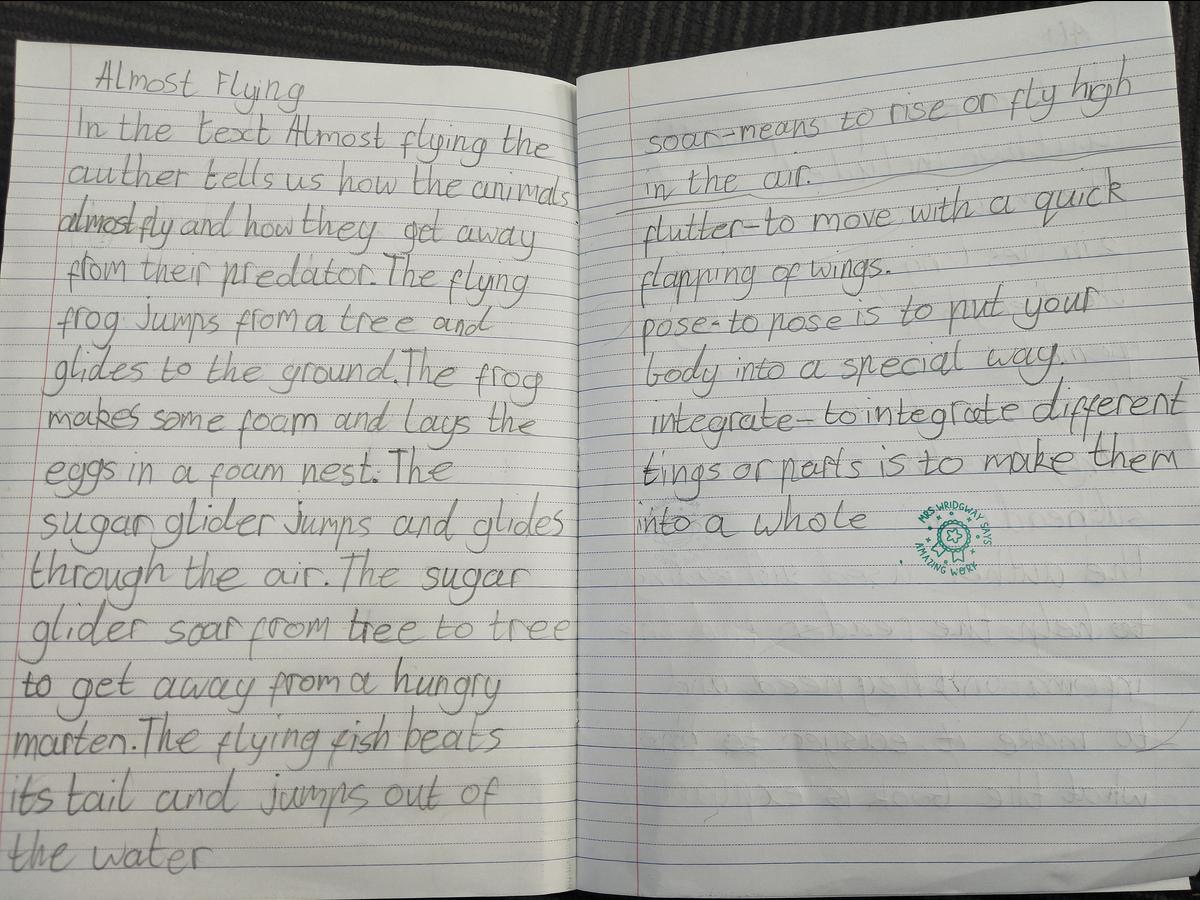 Almost Flying
In the text Almost flying the
auther tells us how the animals
almost fly and how they get away
from their predator. The flying
frog jumps from a tree and
glides to the ground. The frog
makes some foam and lays the
eggs in a foam nest. The
sugar glider jumps and glides
through the air. The sugar
glider soar from tree to tree
to get away from a hungry
marten. The flying fish beats
its tail and jumps out of
the water
soar-means to rise or fly high
in the air.
flutter-to move with a quick
flapping of wings.
pose-to pose is to put your
body into a special way.
integrate-to integrate different
tings or parts is to make them
into a whole
MRS WRIDGWAY SAYS
AMAZING WORK